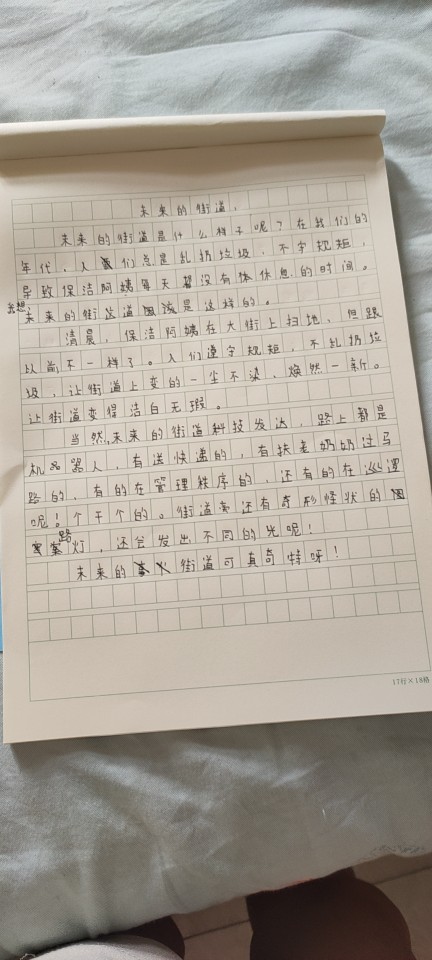 未来的街道,
未来的街道是什么样子呢?在我们的
年代,人们总是乱扔垃圾,不字规矩,
导致保洁阿姨每天都没有体休息的时间。
我想,未来的街道应该是这样的。
清晨,保洁阿姨在大街上扫地,但跟
以前不一样了。人们遵字规矩,不乱扔垃
圾,让街道上变的一尘不染,焕然一新。
让街道变得洁白无瑕。
当然,未来的街道科技发达,路上都是
机器人,有送快递的,有扶老奶奶过马
路的,有的在管理秩序的,还有的在巡逻
呢!个干个的。街道旁还有奇形怪状的
路灯,还会发出不同的光呢!
未来的街道可真奇特呀!
17行×18格